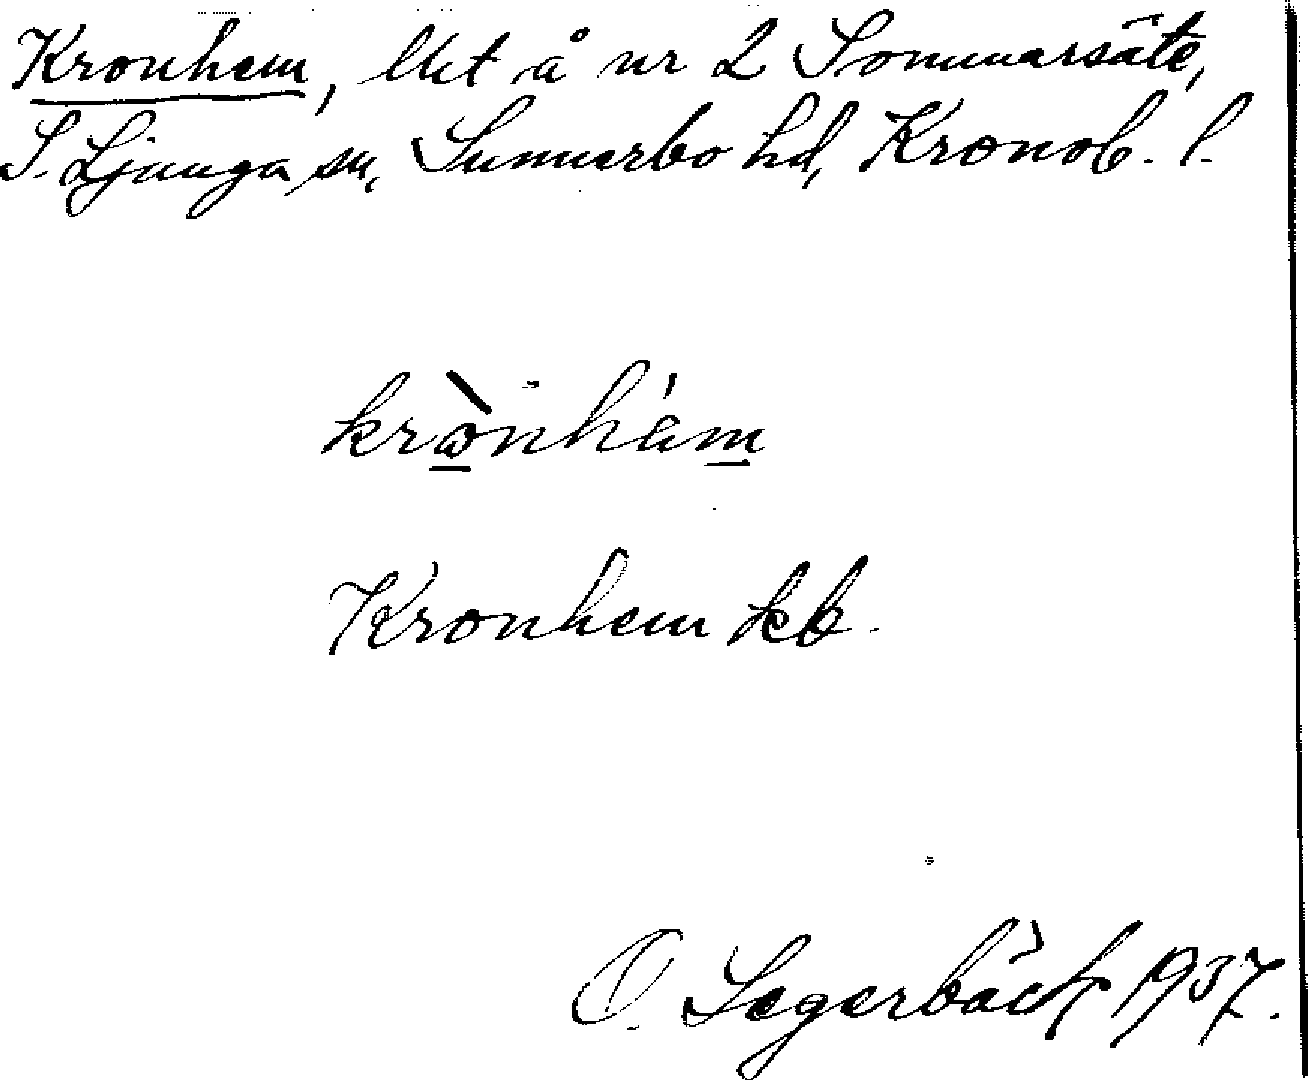 Kronhem, lht å nr 2 Sommarsäte,
S. Ljunga sn, Sunnerbo hd, Kronob. l.
krònhém
Kronhem kb.
O. Segerbäck 1937.